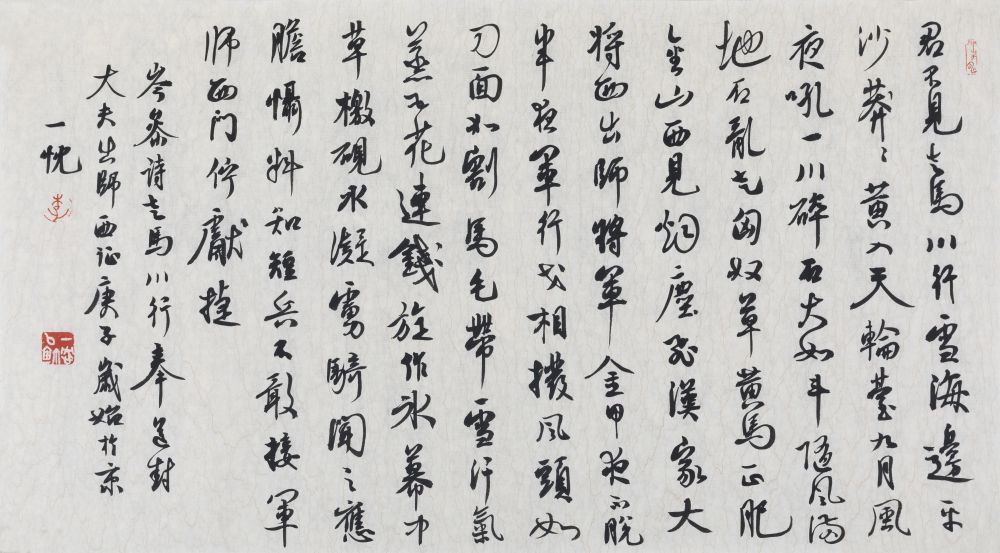 君不見走馬川行雪海邊平
沙莽々黄入天輪臺九月風
夜吼一川碎石大如斗隨風滿
地石亂走匈奴草黄馬正肥
金山西見烟塵飛漢家大
将西出師將軍金甲夜不脱
半夜軍行戈相撥風頭如
刀面如割馬毛帶雪汗氣
蒸五花連錢旋作冰幕中
草檄硯水凝虜騎聞之應
膽懾料知短兵不敢接軍
师西门佇獻捷
岑參诗走馬川行奉送封
大夫出師西证庚子歲始於京
一忱
李